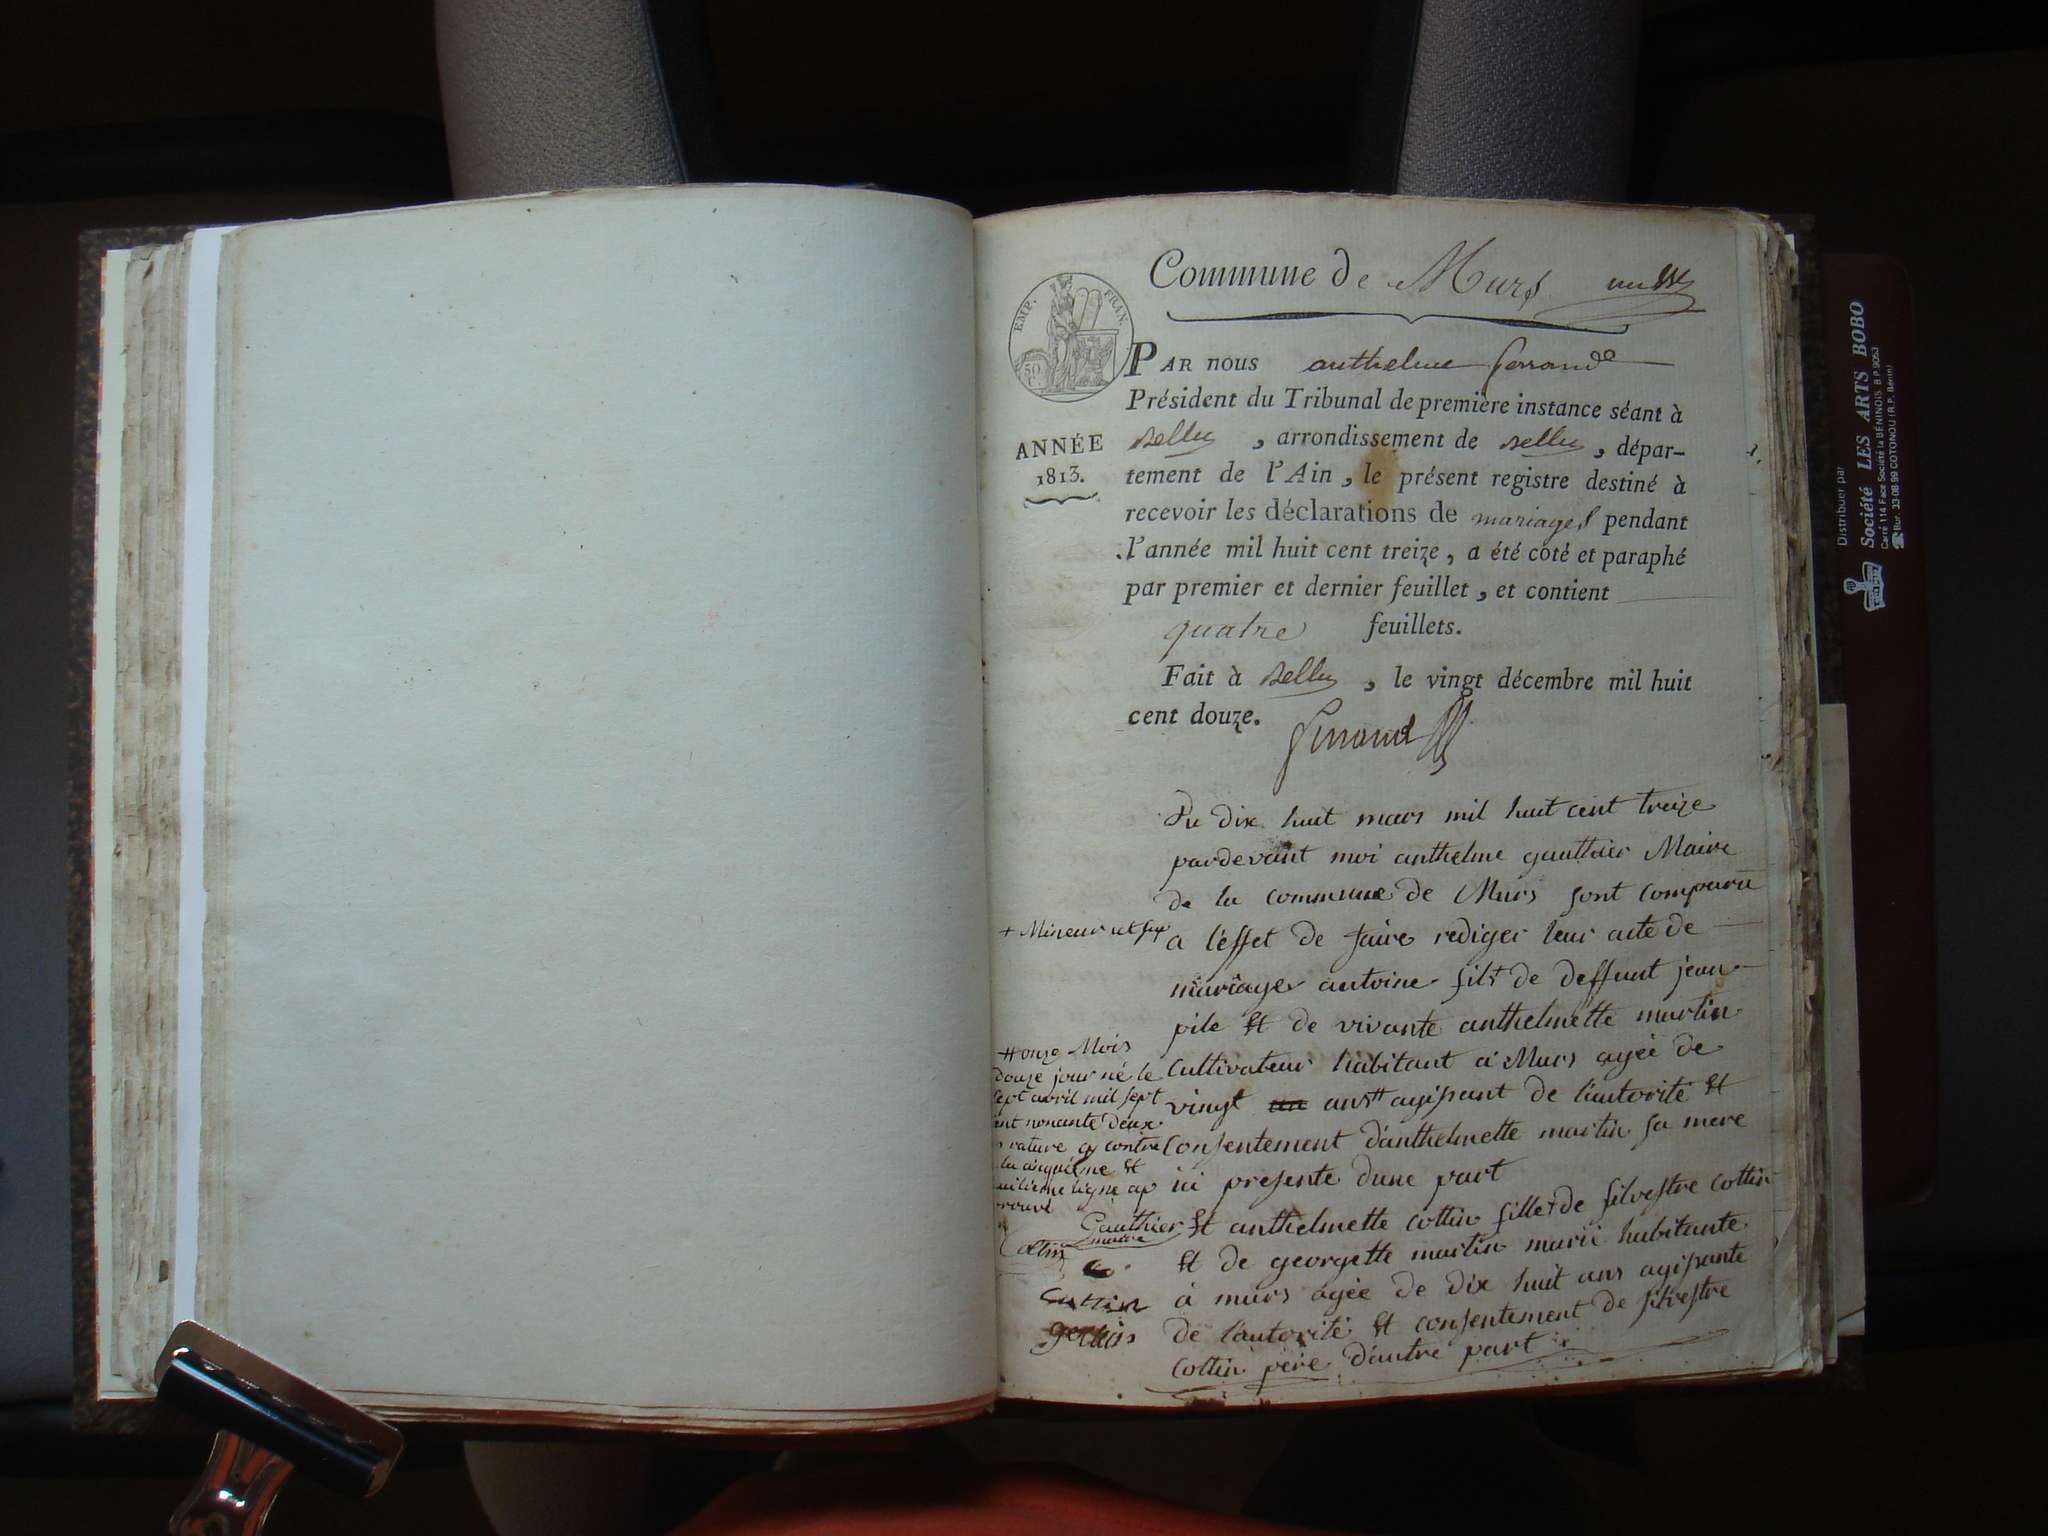 Commune de Murs
EMP. FRAN.
50
C.
PAR nous anthelme ferrand
Président du Tribunal de première instance séant à
Belley, arrondissement de Belley, dépar-
ANNÉE
1813.
tement de l'Ain, le présent registre destiné à
recevoir les déclarations de mariages pendant
l'année mil huit cent treize, a été coté et paraphé
par premier et dernier feuillet, et contient
quatre feuillets.
Fait à Belley, le vingt décembre mil huit
cent douze.
ferrand
Du dix huit mars mil huit cent treize
pardevant moi anthelme gauthier Maire
de la commune de Murs sont comparu
a leffet de faire rediger leur acte de
mariage antoine fils + de deffunt jean
pile et de vivante anthelmette martin
Cultivateur habitant a Murs agée de
vingt ans # agissant de lautorité et
consentement danthelmette martin sa mere
ici presente dune part
et anthelmette cottin fille + de silvestre cottin
et de georgette martin marié habitante
à murs agée de dix huit ans agissante
de lautorité et consentement de silvestre
cottin père dautre part
+ Mineur
# onze Mois
douze jour né le
sept avril mil sept
cent nonante deux
rature cy contre
la cinquième et
ligne ap
prouvé
Gauthier
maire
Cottin
Distribuer par
Société LES ARTS BOBO
Carré 114 Face Société la BÉNINOIS B.P. 9053
Bur. 33-08-99 COTONOU (R.P. Bénin)